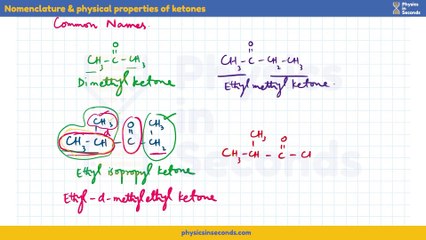 Nomenclature & physical properties of ketones
Physics in Seconds
Common Names.
O
CH3 – C – CH3
Dimethyl ketone
O
CH3 – C – CH2 – CH3
Ethylmethyl ketone.
CH3 O CH3
CH3 – CH – C – CH2
Ethyl isopropyl ketone
Ethyl-d-methylethyl ketone
CH3 O
CH3 – CH – C – Cl
Physics in Seconds
physicsinseconds.com